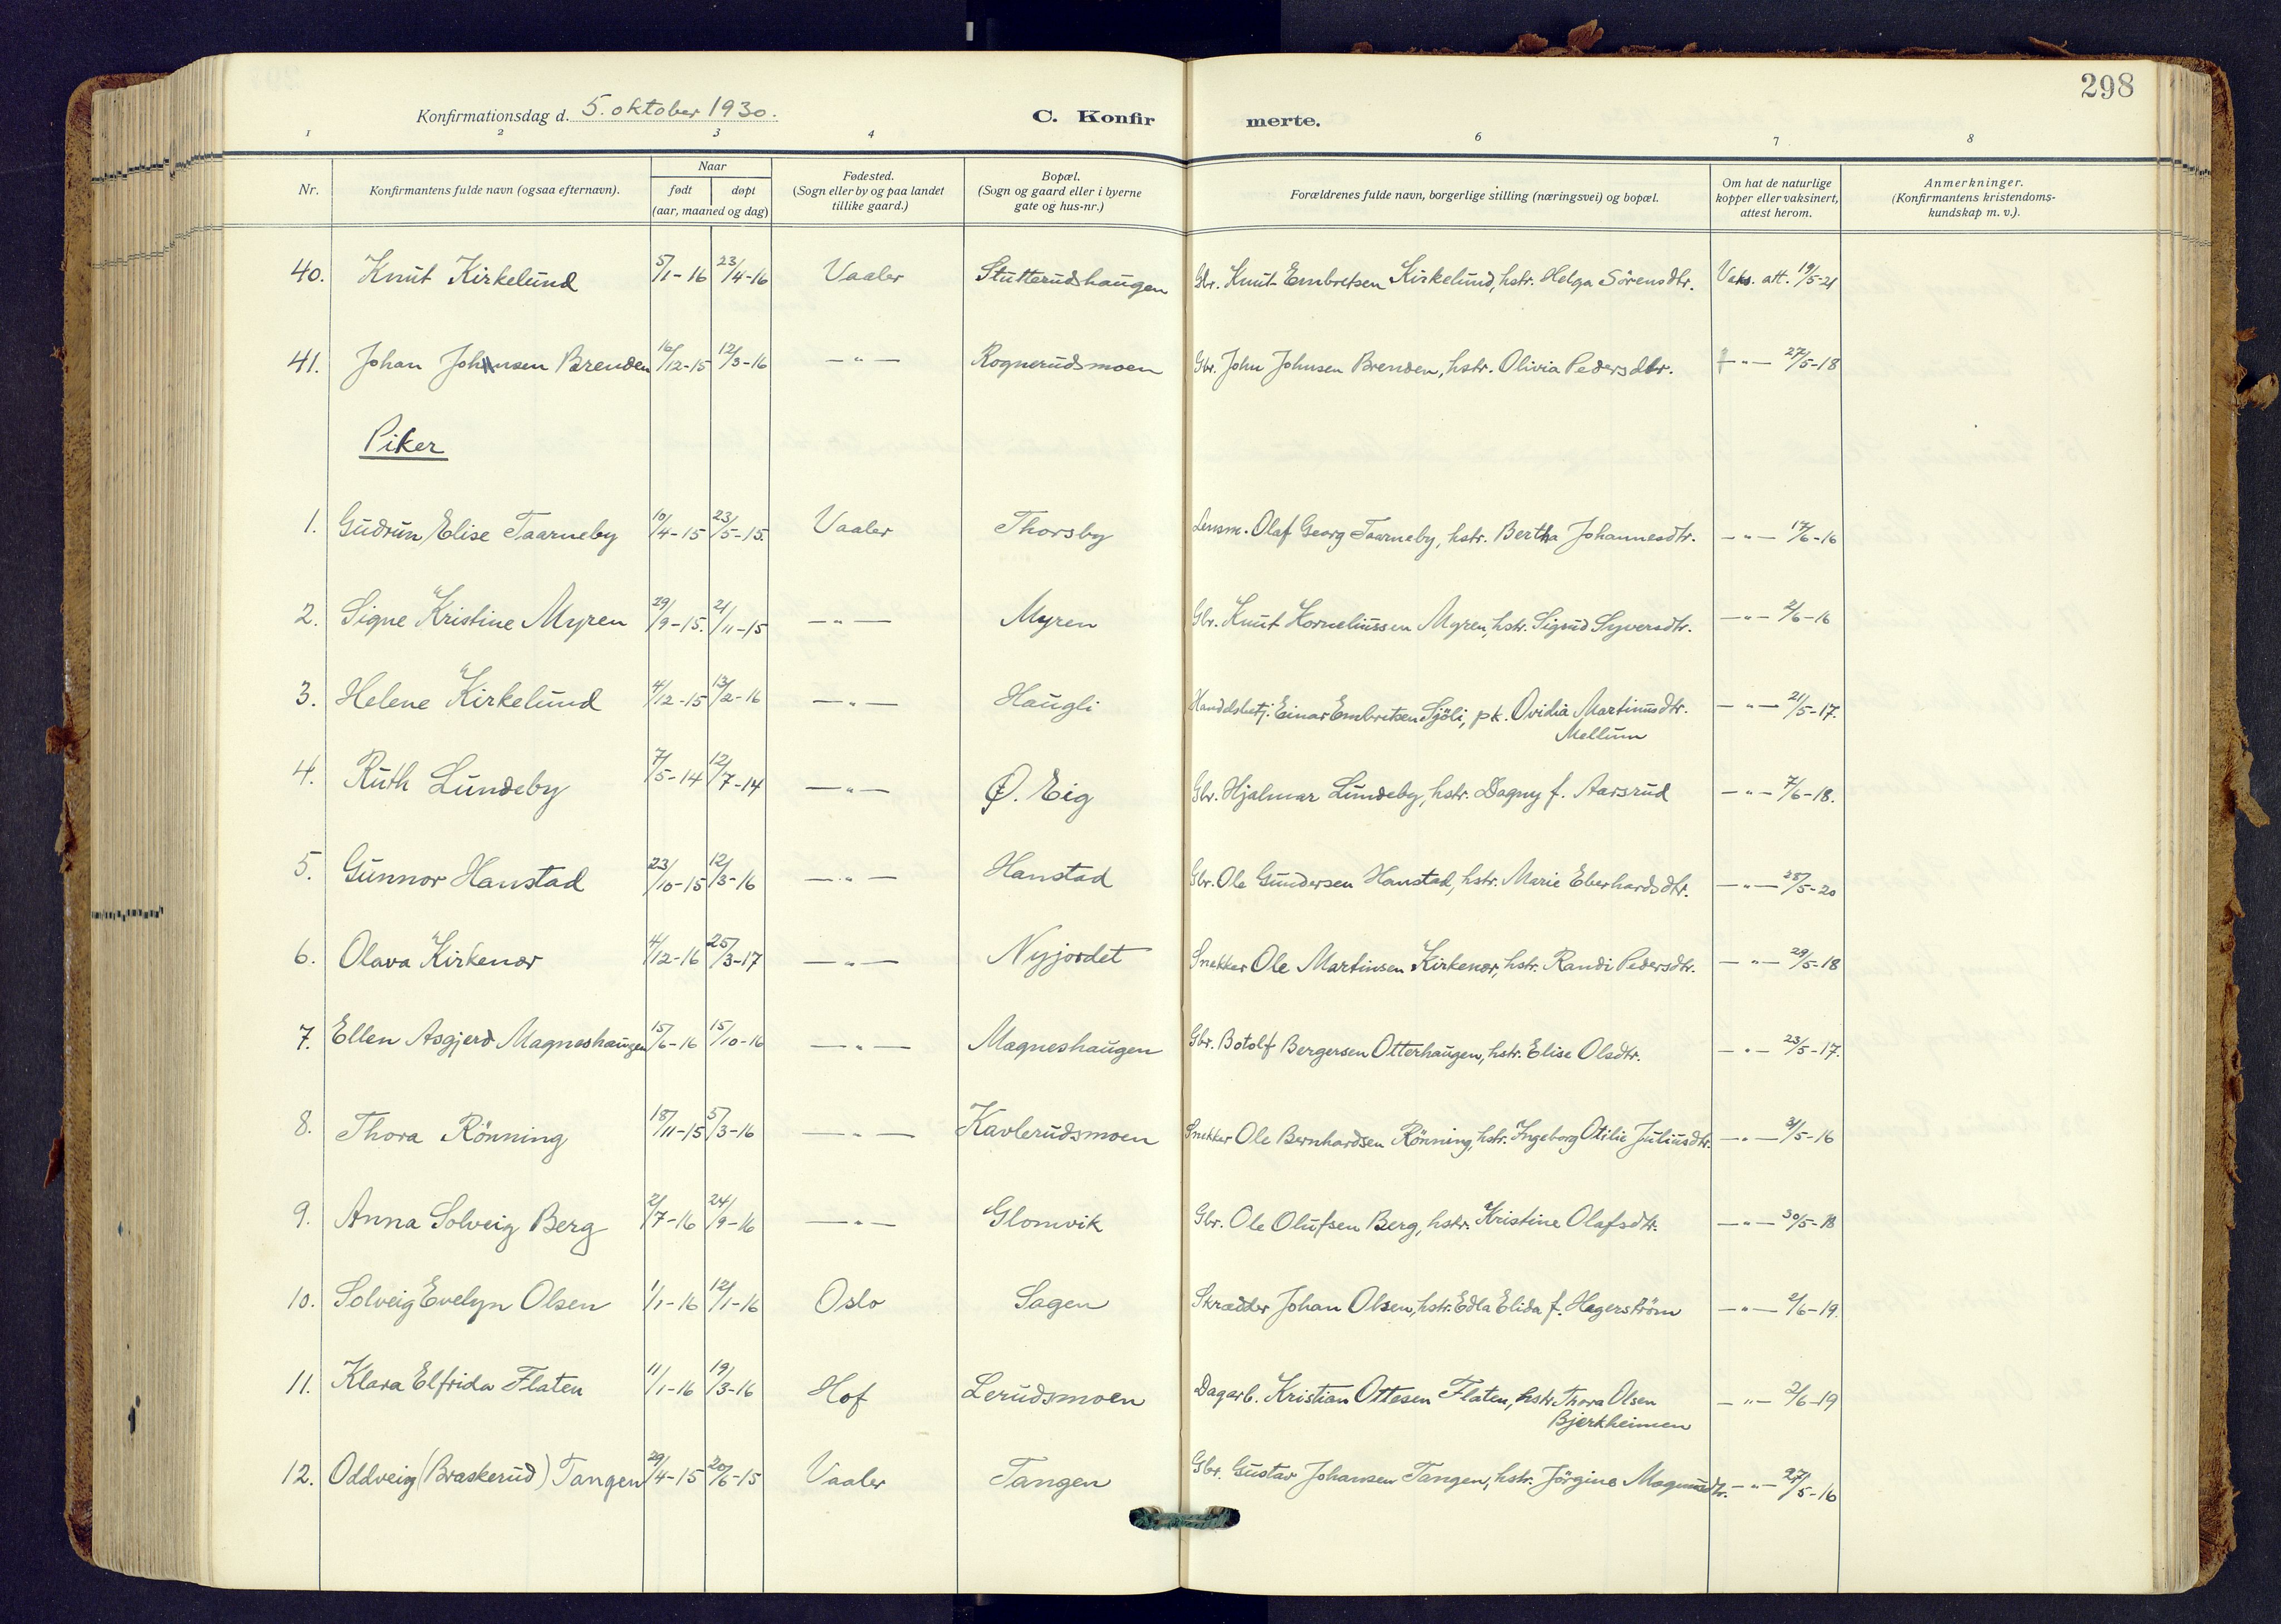 298
Konfirmationsdag d. 5. oktober 1930. C. Konfirmerte.
1 2 3 4 6 7 8
Nr. Konfirmantens fulde navn (ogsaa efternavn). Naar født døpt (aar, maaned og dag) Fødested. (Sogn eller by og paa landet tillike gaard.) Bopæl. (Sogn og gaard eller i byerne gate og hus-nr.) Forældrenes fulde navn, borgerlige stilling (næringsvei) og bopæl. Om hat de naturlige kopper eller vaksinert, attest herom. Anmerkninger. (Konfirmantens kristendomskundskap m. v.).
40. Knut Kirkelund 5/1-16 23/4-16 Vaaler Stutterudshaugen Gbr. Knut Embretsen Kirkelund, hstr. Helga Sörensdtr. Vaks. att. 19/5-21
41. Johan Johnsen Brenden 16/12-15 12/3-16 —"— Rognerudsmoen Gbr. John Johnsen Brenden, hstr. Olivia Pedersdtr. —"— 27/5-18
Piker
1. Gudrun Elise Taarneby 10/4-15 23/5-15. Vaaler Thorsby Lensm. Olaf Georg Taarneby, hstr. Bertha Johannesdtr. —"— 17/6-16
2. Signe Kristine Myren 29/9-15. 21/11-15 —"— Myren Gbr. Knut Korneliussen Myren, hstr. Sigrud Syversdtr. —"— 2/6-16
3. Helene Kirkelund 4/12-15 13/2-16 —"— Haugli Handelsbetj. Einar Embretsen Sjöli, pk. Ovidia Martinusdtr. —"— 21/5-17.
Mellum
4. Ruth Lundeby 7/5-14 12/7-14 —"— Ø. Eig Gbr. Hjalmar Lundeby, hstr. Dagny f. Aarsrud —"— 7/6-18.
5. Gunnor Hanstad 23/10-15 12/3-16 —"— Hanstad Gbr. Ole Gundersen Hanstad, hstr. Marie Eberhardsdtr. —"— 28/5-20
6. Olava Kirkenær 4/12-16 25/3-17 —"— Nyjordet Snekker Ole Martinsen Kirkenær, hstr. Randi Pedersdtr. —"— 29/5-18
7. Ellen Asgjerd Magneshaugen 15/6-16 15/10-16 —"— Magneshaugen Gbr. Botolf Bergersen Otterhaugen, hstr. Elise Olsdtr. —"— 23/5-17.
8. Thora Rönning 18/11-15 5/3-16 —"— Kavlerudsmoen Snekker Ole Bernhardsen Rönning, hstr. Ingeborg Otilie Juliusdtr. —"— 31/5-16
9. Anna Solveig Berg 2/7-16 24/9-16 —"— Glomvik Gbr. Ole Olufsen Berg, hstr. Kristine Olafsdtr. —"— 30/5-18
10. Solveig Evelyn Olsen 1/1-16 12/1-16 Oslo Sagen Skrædder Johan Olsen, hstr. Edla Elida f. Hagerström —"— 2/6-19.
11. Klara Elfrida Flaten 11/1-16 19/3-16 Hof Lerudsmoen Dagarb. Kristian Ottesen Flaten, hstr. Thora Olsen —"— 2/6-19
Bjerkheimen
12. Oddveig (Braskerud) Tangen 29/4-15 20/6-15 Vaaler Tangen Gbr. Gustav Johansen Tangen, hstr. Jörgine Magnusdtr. —"— 27/5-16